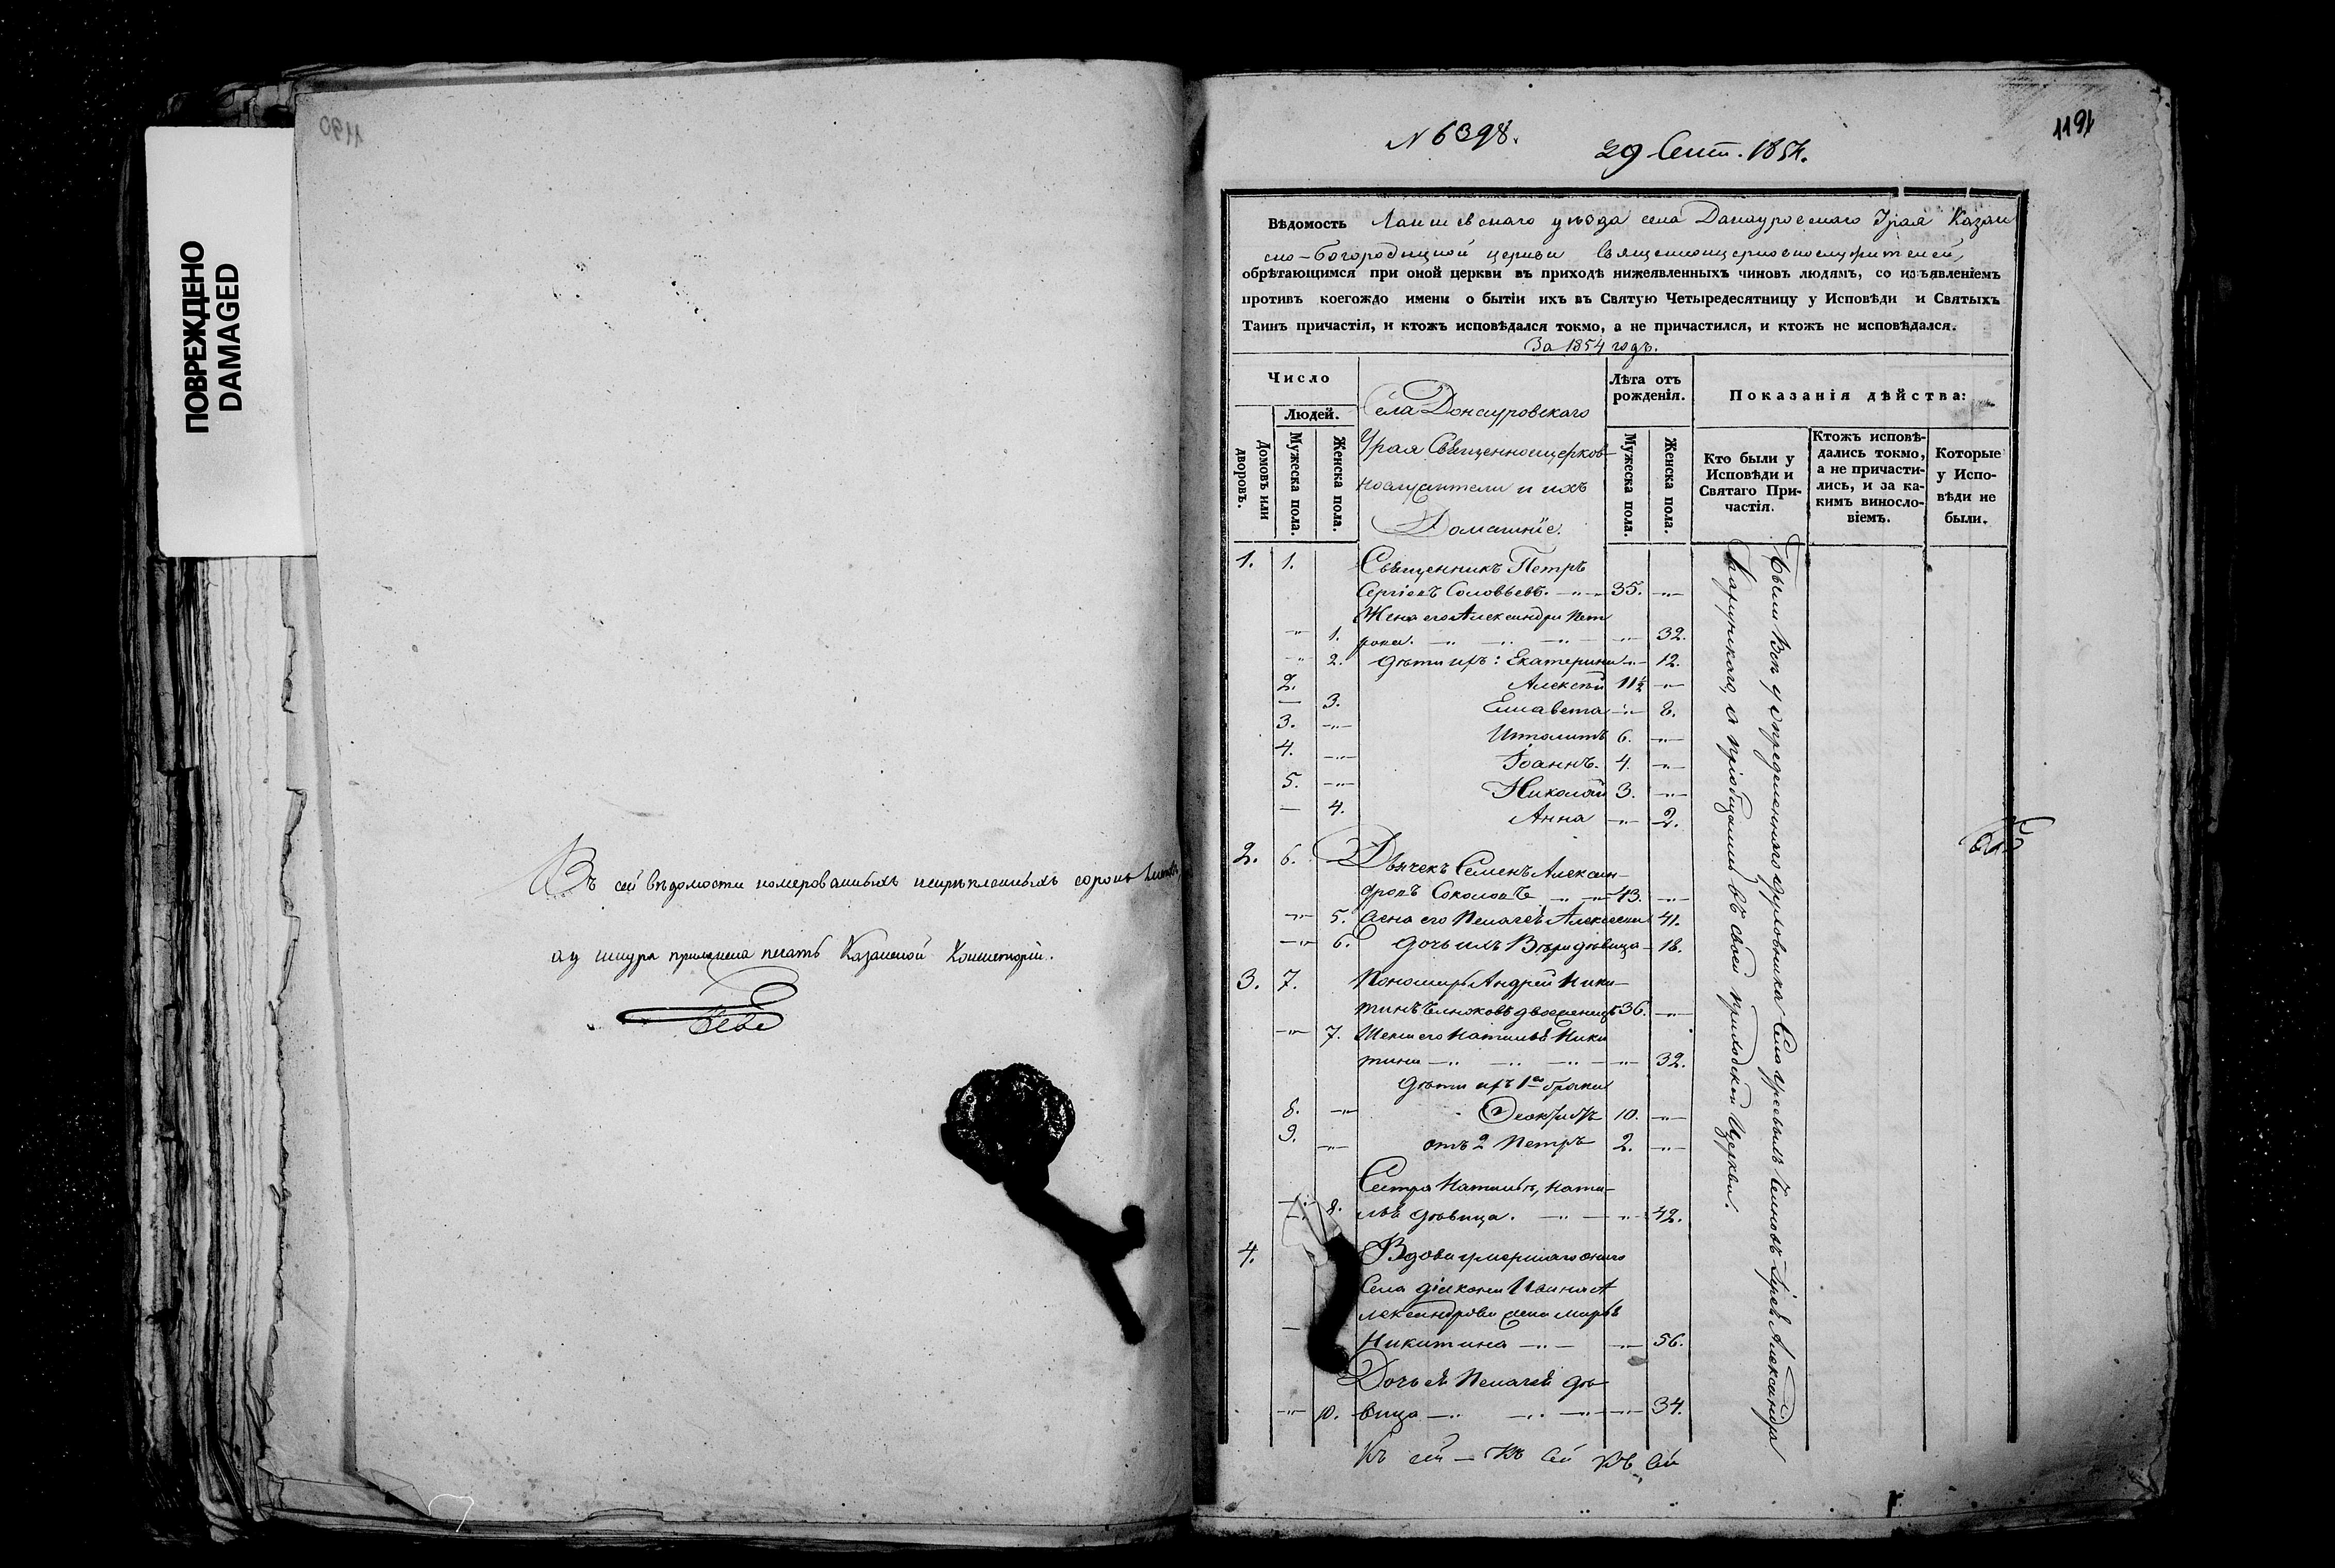 ПОВРЕЖДЕНО
DAMAGED
1190
Въ сей вѣдомости номерованныхъ и скрѣпленныхъ сорокъ листовъ,
а у шнура приложена печать Казанской Консисторіи.
N 6398.
29 Сент. 1854.
1191
Вѣдомость Лаишевскаго уѣзда села Данауровскаго Урая Казан
ско-Богородицкой церкви священноцерковнослужителей,
обрѣтающимся при оной церкви въ приходѣ нижеявленныхъ чиновъ людямъ, со изъявленіемъ
противъ коегождо имени о бытіи ихъ въ Святую Четыредесятницу у Исповѣди и Святыхъ
Таинъ причастія, и ктожъ исповѣдался токмо, а не причастился, и ктожъ не исповѣдался.
За 1854 годъ.
Число
Людей.
Домовъ или дворовъ.
Мужеска пола.
Женска пола.
Села Донауровскаго
Урая Священноцерков-
нослужители и ихъ
Домашніе.
Лѣта отъ рожденія.
Мужеска пола.
Женска пола.
Показанія дѣйства:
Кто были у Исповѣди и Святаго При-частія.
Ктожъ исповѣ-дались токмо, а не причасти-лись, и за ка-кимъ винослo-віемъ.
Которые у Испо-вѣди не были.
1. 1. Священникъ Петръ
Сергіевъ Соловьевъ. 35.
Жена его Александра Пет
1. рова. 32.
2. дѣти ихъ: Екатерина 12.
2. Алексѣй 11½
3. Елисавета 8.
3. Ипполитъ 6.
4. Іоаннъ. 4.
5. Николай 3.
4. Анна 2.
2. 6. Дьячекъ Семенъ Алексан-
дровъ Соколовъ 43.
5. Жена его Пелагея Алексеева 41.
6. дочь ихъ Вѣра дѣвица 18.
3. 7. Пономарь Андрей Ники-
тинъ двоеженецъ 36.
7. Жена его Наталья Ники
тина 32.
дѣти ихъ 1го брака
8. 10.
9. отъ 2 Петръ 2.
Сестра Натальи, Ната-
8. лья дѣвица. 42.
4. Вдова умершаго онаго
Села діакона Ивана А
лександрова жена Марья
Никитина 56.
Дочь ея Пелагея дѣ-
10. вица 34.
Были всѣ у опредѣленнаго духовника Села Іерея Александра
а пріобщались въ своей приходской Церкви.
Къ сей - Къ сей Къ сей